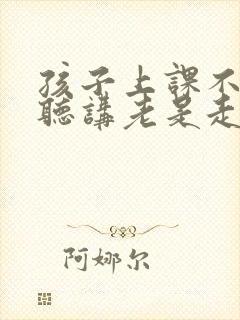 孩子上課不
聽講老是走
阿娜尔